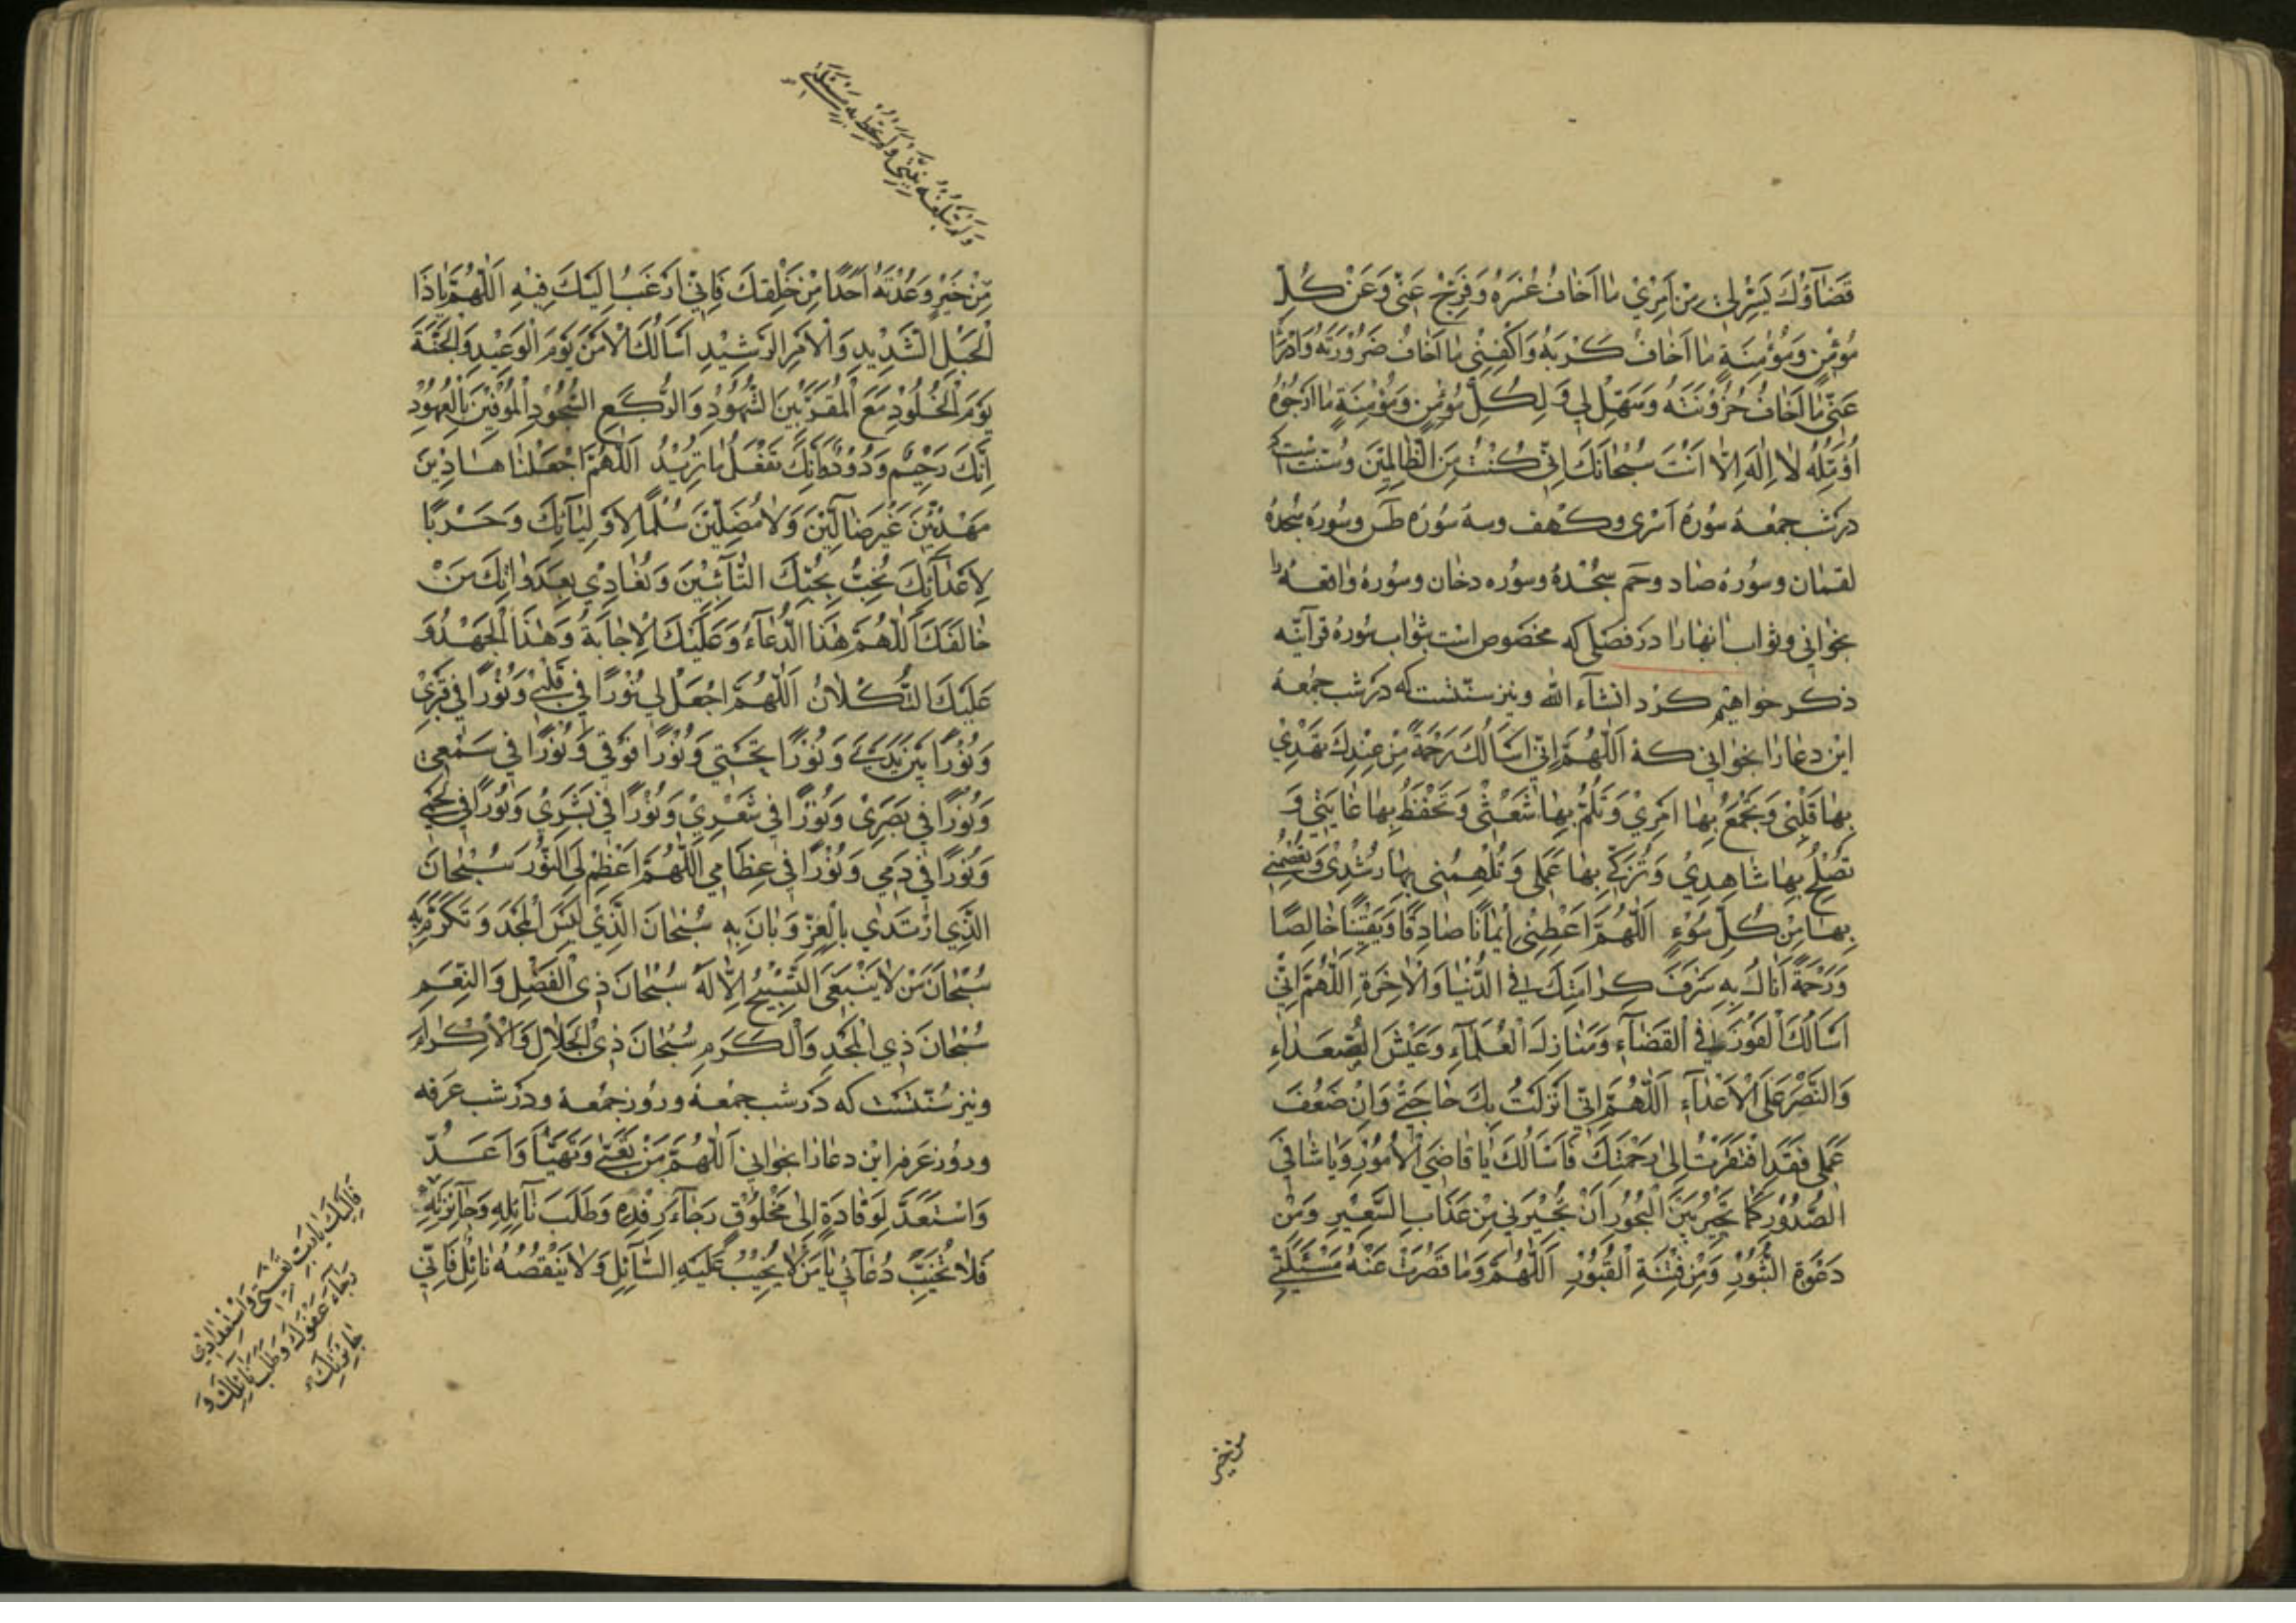 قَضَآؤُكَ يَسِّرْ لِي مِنْ اَمْرِيْ مٰا اَخٰافُ عُسْرَهُ وَفَرِّجْ عَنّي وَعَنْ كُلِّ
مُؤْمِنٍ وَمُؤْمِنَةٍ مٰا اَخٰافُ كَرْبَهُ وَاكْفِنِي مٰا اَخٰافُ ضَرُوْرَتَهُ وَادْرَأْ
عَنّي مٰا اَخٰافُ حُزُوْنَتَهُ وَسَهِّلْ لِي وَلِكُلِّ مُؤْمِنٍ وَمُؤْمِنَةٍ مٰا اَرْجُوْهُ
اُؤَمِّلُهُ لاٰ اِلٰهَ اِلاّٰ اَنْتَ سُبْحٰانَكَ اِنّي كُنْتُ مِنَ الظّٰالِمِيْنَ وسُنّت است كه
در شب جمعهٔ سورهٔ اسرى وكهف وسهٔ سورهٔ طس وسورهٔ سجدهٔ
لقمٰان وسورهٔ صٰاد وحم سجدهٔ وسوره دخٰان وسورهٔ واقعهٔ را
بخوٰاني وثوٰاب انهٰارا در فصلى كه مخصوص است بثوٰاب سورهٔ قرآنيّه
ذكر خوٰاهيم كرد انشآء الله ونيز سنّتست كه در شب جمعهٔ
اين دعٰارا بخوٰاني كهٔ اَللّٰهُمَّ اِنّي اَسْاَلُكَ رَحْمَةً مِنْ عِنْدِكَ تَهْدِيْ
بِهٰا قَلْبِي وَتَجْمَعُ بِهٰا اَمْرِيْ وَتَلُمُّ بِهٰا شَعْثِيْ وَتَحْفَظُ بِهٰا غٰايَتِي وَ
تُصْلِحُ بِهٰا شٰاهِدِيْ وَتُزَكِّي بِهٰا عَمَلِي وَتُلْهِمُنِي بِهٰا رُشْدِيْ وَتَعْصِمُنِي
بِهٰا مِنْ كُلِّ سُوْءٍ اَللّٰهُمَّ اَعْطِنِي اِيْمٰانًا صٰادِقًا وَيَقِيْنًا خٰالِصًا
وَرَحْمَةً اَنٰالُ بِهِ شَرَفَ كَرٰامَتِكَ فِي الدُّنْيٰا وَالْاٰخِرَةِ اَللّٰهُمَّ اِنّي
اَسْاَلُكَ الْفَوْزَ فِي الْقَضٰآءِ وَمَنٰازِلَ الْعُلَمٰآءِ وَعَيْشَ السُّعَدٰاءِ
وَالنَّصْرَ عَلَى الْاَعْدٰآءِ اَللّٰهُمَّ اِنّي اَنْزَلْتُ بِكَ حٰاجَتِي وَاِنْ ضَعُفَ
عَمَلِي فَقَدِ افْتَقَرْتُ اِلىٰ رَحْمَتِكَ فَاَسْاَلُكَ يٰا قٰاضِيَ الْاُمُوْرِ وَيٰا شٰافِيَ
الصُّدُوْرِ كَمٰا تُجِيْرُ بَيْنَ الْبُحُوْرِ اَنْ تُجِيْرَنِي مِنْ عَذٰابِ السَّعِيْرِ وَمِنْ
دَعْوَةِ الثُّبُوْرِ وَمِنْ فِتْنَةِ الْقُبُوْرِ اَللّٰهُمَّ وَمٰا قَصُرَتْ عَنْهُ مَسْئَلَتِي
من خير
وَلَمْ تَبْلُغْهُ نِيَّتِي وَلَمْ تُحِطْ بِهِ مَسْئَلَتِي
مِنْ خَيْرٍ وَعَدْتَهُ اَحَدًا مِنْ خَلْقِكَ فَاِنّي اَرْغَبُ اِلَيْكَ فِيْهِ اَللّٰهُمَّ يٰا ذَا
الْحَبْلِ الشَّدِيْدِ وَالْاَمْرِ الرَّشِيْدِ اَسْاَلُكَ الْاَمْنَ يَوْمَ الْوَعِيْدِ وَالْجَنَّةَ
يَوْمَ الْخُلُوْدِ مَعَ الْمُقَرَّبِيْنَ الشُّهُوْدِ وَالرُّكَّعِ السُّجُوْدِ الْمُوْفِيْنَ بِالْعُهُوْدِ
اِنَّكَ رَحِيْمٌ وَدُوْدٌ وَاِنَّكَ تَفْعَلُ مٰا تُرِيْدُ اَللّٰهُمَّ اجْعَلْنٰا هٰادِيْنَ
مَهْدِيِّيْنَ غَيْرَ ضٰالِّيْنَ وَلاٰ مُضِلِّيْنَ سِلْمًا لِاَوْلِيٰآئِكَ وَحَرْبًا
لِاَعْدٰآئِكَ نُحِبُّ بِحُبِّكَ التّٰآئِبِيْنَ وَنُعٰادِيْ بِعَدٰوَاتِكَ مَنْ
خٰالَفَكَ اَللّٰهُمَّ هٰذَا الدُّعٰآءُ وَعَلَيْكَ الْاِجٰابَةُ وَهٰذَا الْجَهْدُ وَ
عَلَيْكَ التُّكْلاٰنُ اَللّٰهُمَّ اجْعَلْ لِي نُوْرًا فِي قَلْبِي وَنُوْرًا فِي قَبْرِيْ
وَنُوْرًا بَيْنَ يَدَيَّ وَنُوْرًا تَحْتِي وَنُوْرًا فَوْقِي وَنُوْرًا فِي سَمْعِي
وَنُوْرًا فِي بَصَرِيْ وَنُوْرًا فِي شَعْرِيْ وَنُوْرًا فِي بَشَرِيْ وَنُوْرًا فِي لَحْمِي
وَنُوْرًا فِي دَمِي وَنُوْرًا فِي عِظٰامِي اَللّٰهُمَّ اَعْظِمْ لِيَ النُّوْرَ سُبْحٰانَ
الَّذِي ارْتَدٰى بِالْعِزِّ وَبٰانَ بِهِ سُبْحٰانَ الَّذِيْ لَبِسَ الْمَجْدَ وَتَكَرَّمَ بِهِ
سُبْحٰانَ مَنْ لاٰ يَنْبَغِي التَّسْبِيْحُ اِلاّٰ لَهُ سُبْحٰانَ ذِي الْفَضْلِ وَالنِّعَمِ
سُبْحٰانَ ذِي الْمَجْدِ وَالْكَرَمِ سُبْحٰانَ ذِي الْجَلاٰلِ وَالْاِكْرٰامِ
ونيز سُنّتست كه در شب جمعهٔ وروز جمعهٔ ودر شب عرفه
وروز عرفه اين دعٰارا بخوٰاني اَللّٰهُمَّ مَنْ تَعَبّٰى وَتَهَيَّأَ وَاَعَدَّ
وَاسْتَعَدَّ لِوَفٰادَةٍ اِلىٰ مَخْلُوْقٍ رَجٰآءَ رِفْدِهِ وَطَلَبَ نٰآئِلِهِ وَجٰآئِزَتِهِ
فَلاٰ تُخَيِّبْ دُعٰآئِي يٰا مَنْ لاٰ يَخِيْبُ عَلَيْهِ السّٰآئِلُ وَلاٰ يَنْقُصُهُ نٰائِلٌ فَاِنّي
فَاِلَيْكَ يٰا رَبِّ تَعْبِيَتِي وَاسْتِعْدٰادِيْ
رَجٰآءَ عَفْوِكَ وَطَلَبَ نٰآئِلِكَ وَ
جٰائِزَتِكَ